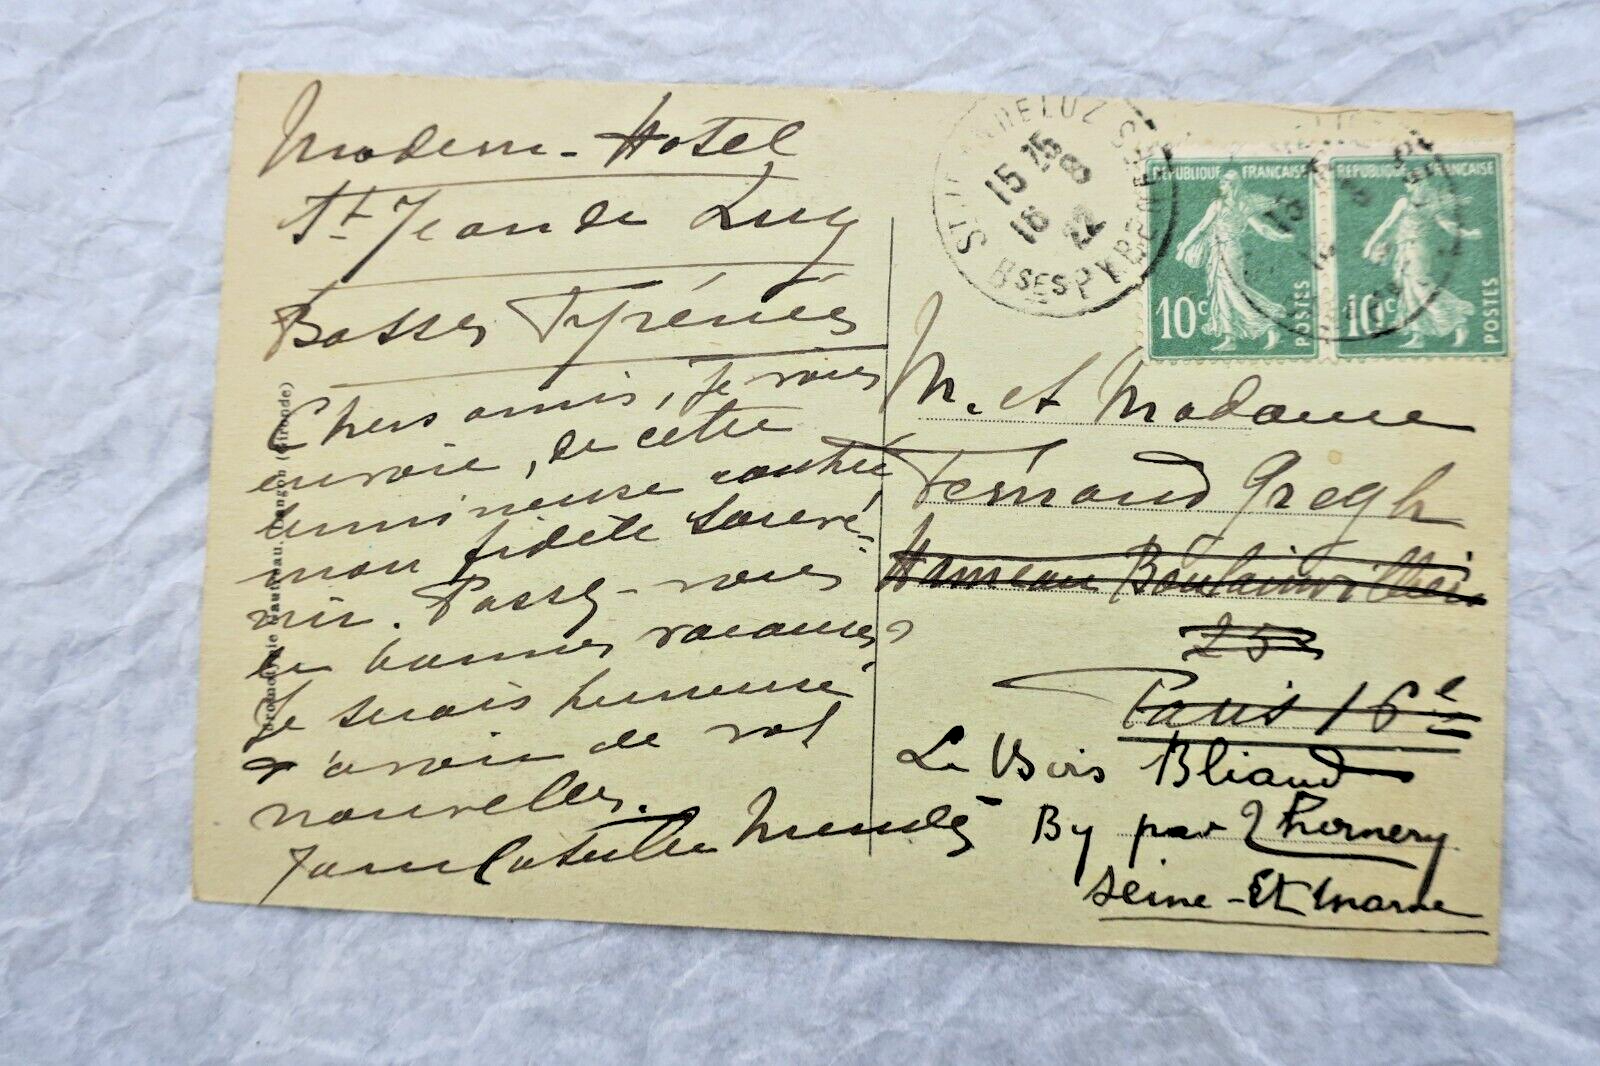 Modern-Hotel
St Jean de Luz
Basses Pyrénées
Chers amis, je vous
envoie, de cette
lumineuse contrée
mon fidèle souve-
nir. Passez-vous
de bonnes vacances?
Je serais heureuse
d'avoir de vos
nouvelles.
Jane Catulle Mendès
(Gironde)
ST JEAN DE LUZ
15 25
16 8
22
BSES PYRENEES
REPUBLIQUE FRANÇAISE
10c
POSTES
REPUBLIQUE
10c
POSTES
M. et Madame
Fernand Gregh
Hameau Boulainvilliers
25
Paris 16e
Le Bois Bliaud
By par Thomery
Seine-Et Marne